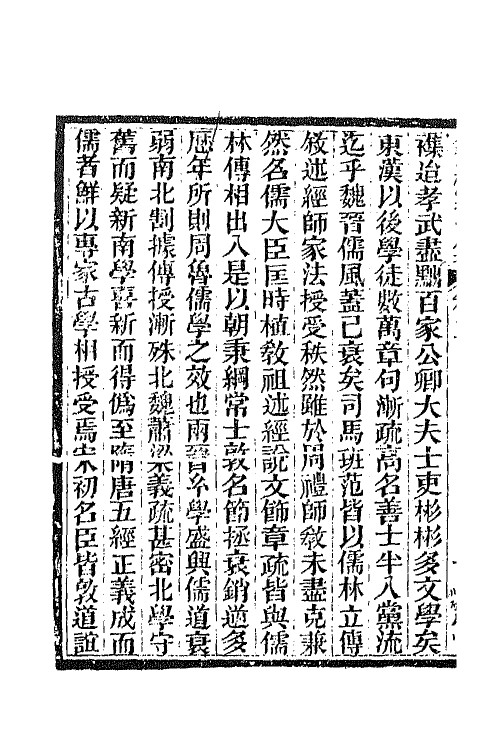 襍迨孝武盡黜百家公卿大夫士吏彬彬多文學矣
東漢以後學徒數萬章句漸疏高名善士半入黨流
迄乎魏晉儒風蓋已衰矣司馬班范皆以儒林立傳
敘述經師家法授受秩然雖於周禮師敎未盡克兼
然名儒大臣匡時植敎祖述經說文飾章疏皆與儒
林傳相出入是以朝秉綱常士敦名節拯衰銷逆多
歷年所則周魯儒學之效也兩晉玄學盛興儒道衰
弱南北割據傳授漸殊北魏蕭梁義疏甚密北學守
舊而疑新南學喜新而得僞至隋唐五經正義成而
儒者鮮以專家古學相授受焉宋初名臣皆敦道誼